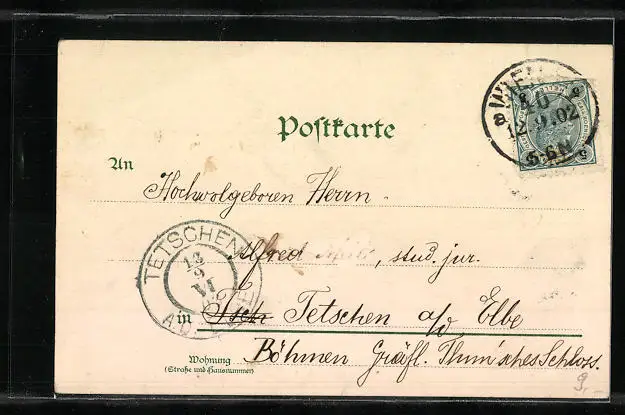 WIEN
40
12.9.02
5-6N
Postkarte
An
Hochwolgeboren Herrn
TETSCHEN
13
9
VI
Alfred , stud. jur.
in Tetschen a/d Elbe
Wohnung
(Straße und Hausnummer)
Böhmen Gräfl. Thun'sches Schloss.
9,-